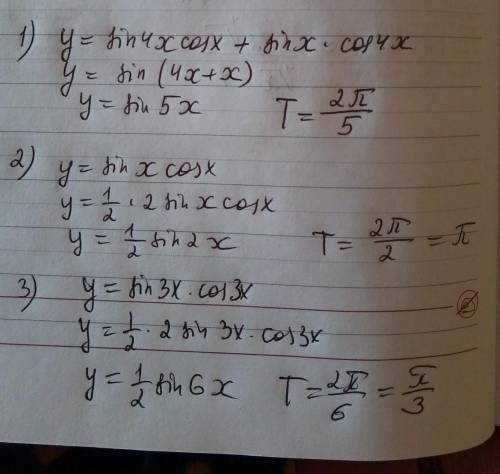 1) y = sin4x cosx + sinx · cos4x
y = sin (4x+x)
y = sin 5x T = 2π/5
2) y = sin x cosx
y = 1/2 · 2 sin x cosx
y = 1/2 sin 2x T = 2π/2 = π
3) y = sin 3x · cos3x
y = 1/2 · 2 sin 3x · cos3x
y = 1/2 sin 6x T = 2π/6 = π/3